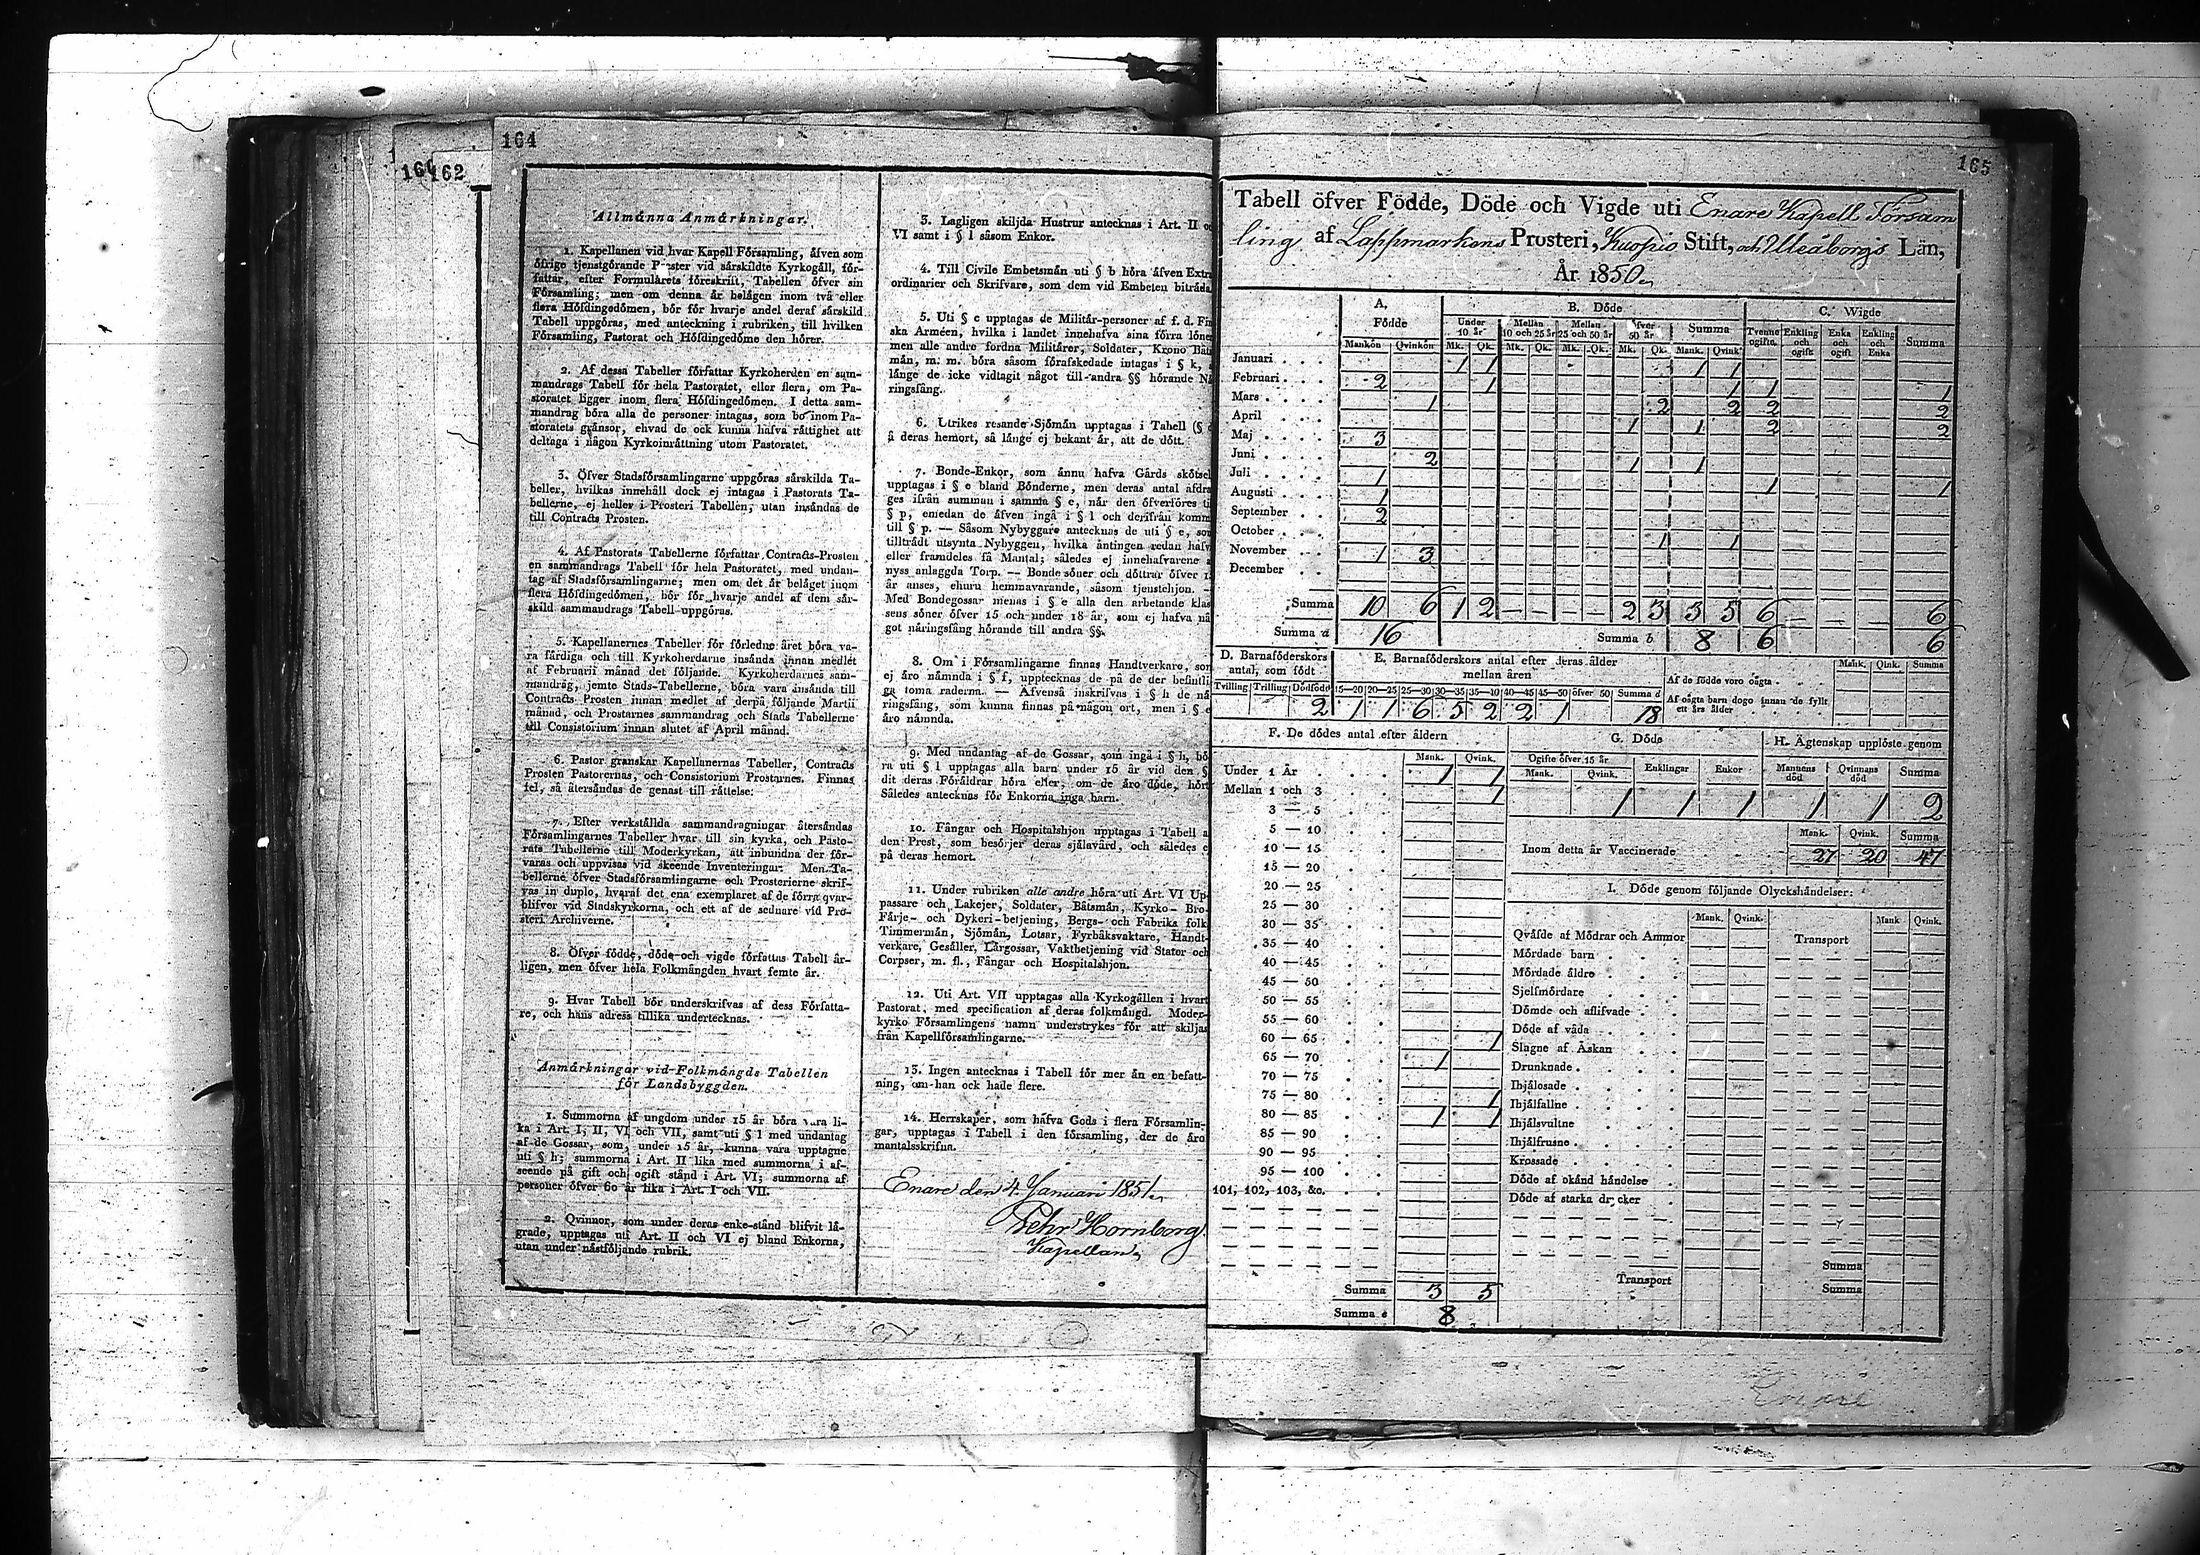 164
161
162
Allmänna Anmärkningar.
1. Kapellanen vid hvar Kapell Församling, äfven som
öfrige tjenstgörande Prester vid särskildte Kyrkogäll, för-
fattar, efter Formulärets föreskrift, Tabellen öfver sin
Församling; men om denna är belägen inom två eller
flera Höfdingedömen, bör för hvarje andel deraf särskild
Tabell uppgöras, med anteckning i rubriken, till hvilken
Församling, Pastorat och Höfdingedöme den hörer.
2. Af dessa Tabeller författar Kyrkoherden en sam-
mandrags Tabell för hela Pastoratet, eller flera, om Pa-
storatet ligger inom flera Höfdingedömen. I detta sam-
mandrag böra alla de personer intagas, som bo inom Pa-
storatets gränsor, ehvad de ock kunna hafva rättighet att
deltaga i någon Kyrkoinrättning utom Pastoratet.
3. Öfver Stadsförsamlingarne uppgöras särskilda Ta-
beller, hvilkas innehåll dock ej intagas i Pastorats Ta-
bellerne, ej heller i Prosteri Tabellen, utan insändas de
till Contracts Prosten.
4. Af Pastorats Tabellerne författar Contracts-Prosten
en sammandrags Tabell för hela Pastoratet, med undan-
tag af Stadsförsamlingarne; men om det är beläget inom
flera Höfdingedömen, bör för hvarje andel af dem sär-
skild sammandrags Tabell uppgöras.
5. Kapellanernes Tabeller för förledne året böra va-
ra färdiga och till Kyrkoherdarne insända innan medlet
af Februarii månad det följande. Kyrkoherdarnes sam-
mandrag, jemte Stads-Tabellerne, böra vara insända till
Contracts Prosten innan medlet af derpå följande Martii
månad, och Prostarnes sammandrag och Stads Tabellerne
till Consistorium innan slutet af April månad.
6. Pastor granskar Kapellanernas Tabeller, Contracts
Prosten Pastorernas, och Consistorium Prostarnes. Finnas
fel, så återsändas de genast till rättelse.
7. Efter verkställda sammandragningar återsändas
Församlingarnes Tabeller hvar till sin kyrka, och Pasto-
rats Tabellerne till Moderkyrkan, att inbundna der för-
varas och uppvisas vid skeende Inventeringar. Men Ta-
bellerne öfver Stadsförsamlingarne och Prosterierne skrif-
vas in duplo, hvaraf det ena exemplaret af de förra qvar-
blifver vid Stadskyrkorna, och ett af de sednare vid Pro-
steri Archiverne.
8. Öfver födde, döde och vigde författas Tabell år-
ligen, men öfver hela Folkmängden hvart femte år.
9. Hvar Tabell bör underskrifvas af dess Författa-
re, och hans adress tillika undertecknas.
Anmärkningar vid Folkmängds Tabellen
för Landsbyggden.
1. Summorna af ungdom under 15 år böra vara li-
ka i Art. I, II, VI och VII, samt uti § l med undantag
af de Gossar, som, under 15 år, kunna vara upptagne
uti § h; summorna i Art. II lika med summorna i af-
seende på gift och ogift stånd i Art. VI; summorna af
personer öfver 60 år lika i Art. I och VII.
2. Qvinnor, som under deras enke-stånd blifvit lä-
grade, upptagas uti Art. II och VI ej bland Enkorna,
utan under nästföljande rubrik.
3. Lagligen skiljda Hustrur antecknas i Art. II oc
VI samt i § l såsom Enkor.
4. Till Civile Embetsmän uti § b höra äfven Extra
ordinarier och Skrifvare, som dem vid Embeten biträda.
5. Uti § c upptagas de Militär-personer af f. d. Fin
ska Arméen, hvilka i landet innehafva sina förra löner
men alle andre fordna Militärer, Soldater, Krono Båts
män, m. m. böra såsom förafskedade intagas i § k,
länge de icke vidtagit något till andra §§ hörande Nä
ringsfång.
6. Utrikes resande Sjömän upptagas i Tabell (§
å deras hemort, så länge ej bekant är, att de dött.
7. Bonde-Enkor, som ännu hafva Gårds skötsel
upptagas i § e bland Bönderne, men deras antal afdra
ges ifrån summan i samma § e, när den öfverföres ti
§ p, emedan de äfven ingå i § l och derifrån komm
till § p. — Såsom Nybyggare antecknas de uti § e, som
tillträdt utsynta Nybyggen, hvilka äntingen redan hafv
eller framdeles få Mantal; således ej innehafvarene
nyss anlaggda Torp. — Bonde söner och döttrar öfver 1
år anses, ehuru hemmavarande, såsom tjenstehjon. —
Med Bondegossar menas i § e alla den arbetande klas
sens söner öfver 15 och under 18 år, som ej hafva nå
got näringsfång hörande till andra §§.
8. Om i Församlingarne finnas Handtverkare, som
ej äro nämnda i § f, upptecknas de på de der befintli
ga toma raderna. — Äfvenså inskrifvas i § h de nä
ringsfång, som kunna finnas på någon ort, men i §
äro nämnda.
9. Med undantag af de Gossar, som ingå i § h, bö
ra uti § l upptagas alla barn under 15 år vid den §
dit deras Föräldrar höra eller, om de äro döde, hört
Således antecknas för Enkorna inga barn.
10. Fångar och Hospitalshjon upptagas i Tabell a
den Prest, som besörjer deras själavård, och således e
på deras hemort.
11. Under rubriken alle andre höra uti Art. VI Up
passare och Lakejer, Soldater, Båtsmän, Kyrko- Bro-
Färje- och Dykeri-betjening, Bergs- och Fabriks folk
Timmermän, Sjömän, Lotsar, Fyrbåksvaktare, Handt-
verkare, Gesäller, Lärgossar, Vaktbetjening vid Stater och
Corpser, m. fl., Fångar och Hospitalshjon.
12. Uti Art. VII upptagas alla Kyrkogällen i hvart
Pastorat, med specification af deras folkmängd. Moder-
kyrko Församlingens namn understrykes för att skiljas
från Kapellförsamlingarne.
13. Ingen antecknas i Tabell för mer än en befatt-
ning, om han ock hade flere.
14. Herrskaper, som hafva Gods i flera Församlin-
gar, upptagas i Tabell i den församling, der de äro
mantalsskrifna.
Enare den 4 Januari 1851.
Pehr Hornborg.
Kapellan.
165
Tabell öfver Födde, Döde och Vigde uti Enare Kapell Försam
ling af Lappmarkens Prosteri, Kuopio Stift, och Uleåborgs Län,
År 1850.
A. Födde B. Döde C. Wigde
Under 10 år Mellan 10 och 25 år Mellan 25 och 50 år Öfver 50 år Summa Tvenne ogifta Enkling och ogift Enka och ogift Enkling och Enka Summa
Mankön Qvinkön Mk. Qk. Mk. Qk. Mk. Qk. Mk. Qk. Mank. Qvink.
Januari 1 1 1 1
Februari 2 1 1 1 1
Mars 1 2 2 2 2
April 1 1 2 2
Maj 3
Juni 2 1 1
Juli 1
Augusti 1 1 1
September 2
October 1 1
November 1 3
December
Summa 10 6 1 2 — — — — 2 3 3 5 6 — — — 6
Summa a 16 Summa b 8 6 6
D. Barnaföderskors antal, som födt E. Barnaföderskors antal efter deras ålder mellan åren Mank. Qink. Summa
Af de födde voro oägta
Tvilling Trilling Dödfödt 15—20 20—25 25—30 30—35 35—40 40—45 45—50 öfver 50 Summa d Af oägta barn dogo innan de fyllt ett års ålder
2 1 1 6 5 2 2 1 18
F. De dödes antal efter åldern G. Döde H. Ägtenskap upplöste genom
Mank. Qvink. Ogifte öfver 15 år Enklingar Enkor Mannens död Qvinnans död Summa
Mank. Qvink.
Under 1 År 1 1
Mellan 1 och 3 1
1 1 1 1 1 2
3 — 5
5 — 10
Mank. Qvink. Summa
10 — 15
Inom detta år Vaccinerade 27 20 47
15 — 20
20 — 25
I. Döde genom följande Olyckshändelser:
25 — 30
Mank. Qvink. Mank Qvink.
30 — 35
Qväfde af Mödrar och Ammor Transport
35 — 40
Mördade barn
40 — 45
Mördade äldre
45 — 50
Sjelfmördare
50 — 55
Dömde och aflifvade
55 — 60
Döde af våda
60 — 65 1
Slagne af Åskan
65 — 70 1
Drunknade
70 — 75
Ihjälosade
75 — 80 1
Ihjälfallne
80 — 85 1 1
Ihjälsvultne
85 — 90
Ihjälfrusne
90 — 95
Krossade
95 — 100
Döde af okänd händelse
101, 102, 103, &c.
Döde af starka drycker
Summa
Transport
Summa 3 5 Summa
Summa e 8
Enare